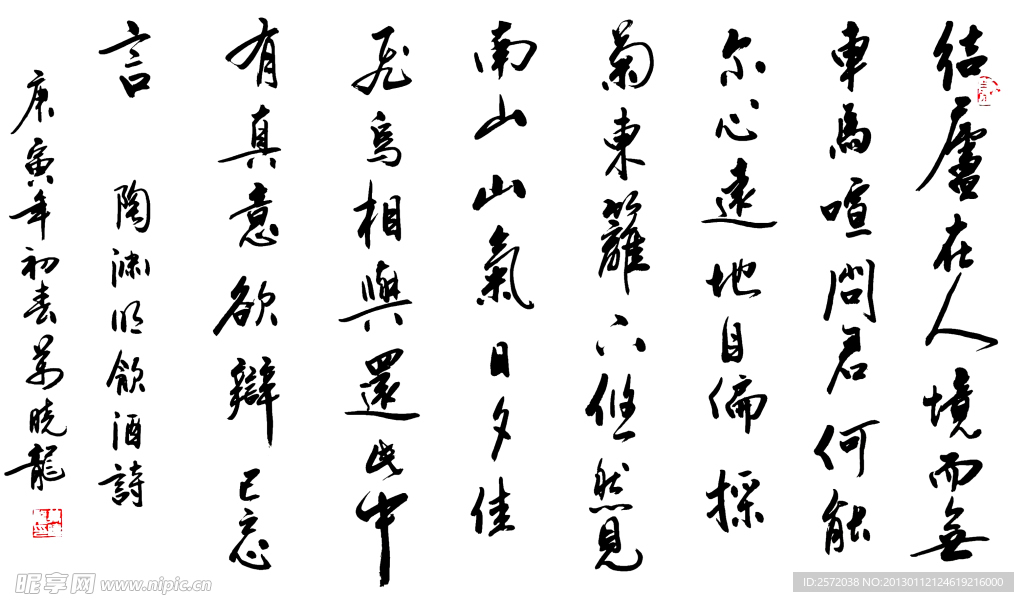 結廬在人境而無
車馬喧問君何能
尔心遠地自偏採
菊東籬下悠然見
南山山氣日夕佳
飛鳥相與還此中
有真意欲辯已忘
言 陶淵明飲酒詩
庚寅年初春萬晓龍
昵享网 www.nipic.cn
ID:2572038 NO:20130112124619216000